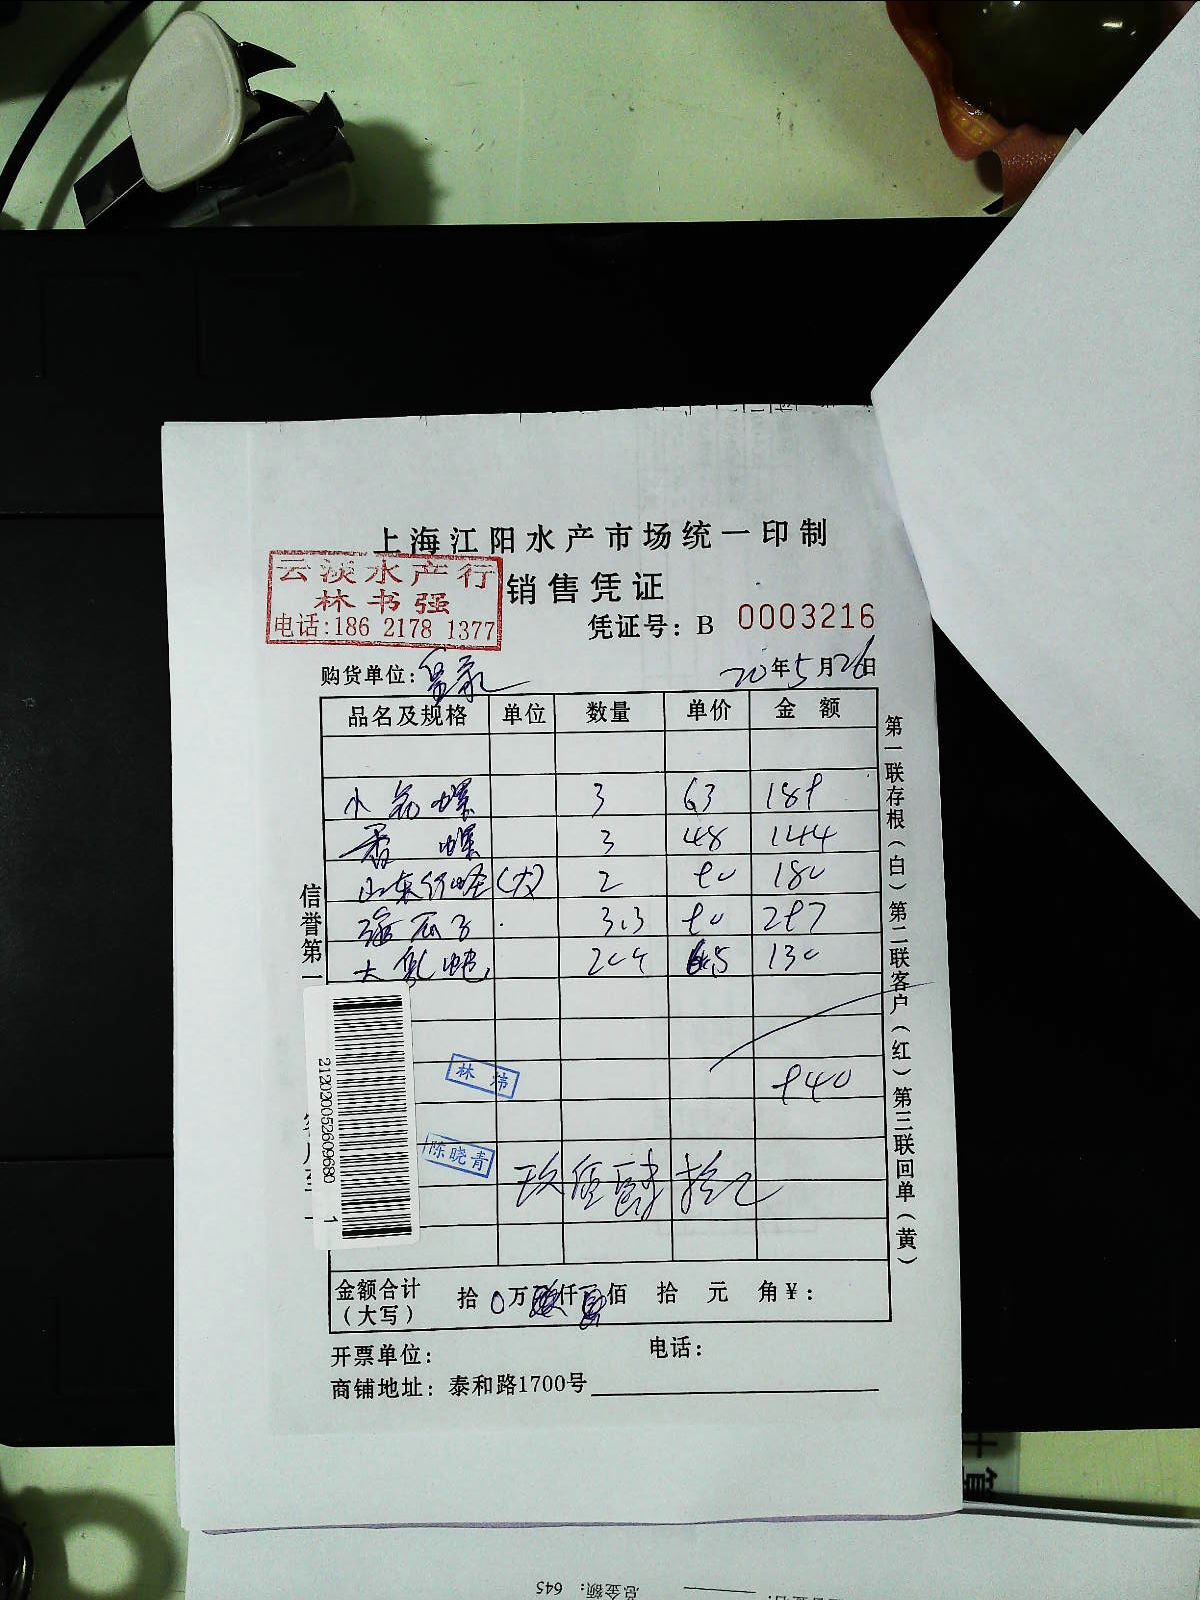 上海江阳水产市场统一印制
云淡水产行
林书强
电话:186 2178 1377
销售凭证
凭证号: B 0003216
购货单位:
20年5月26日
品名及规格 单位 数量 单价 金额
螺 3 63 189
香螺 3 48 144
山东 (大) 2 90 180
海瓜子 3.3 90 297
大 204 65 130
940
林炜
陈晓青
玖佰肆拾元
212020052609680
1
金额合计(大写) 拾0万仟佰拾元角¥:
开票单位: 电话:
商铺地址: 泰和路1700号
信誉第一
第一联存根(白)第二联客户(红)第三联回单(黄)
总金额: 645